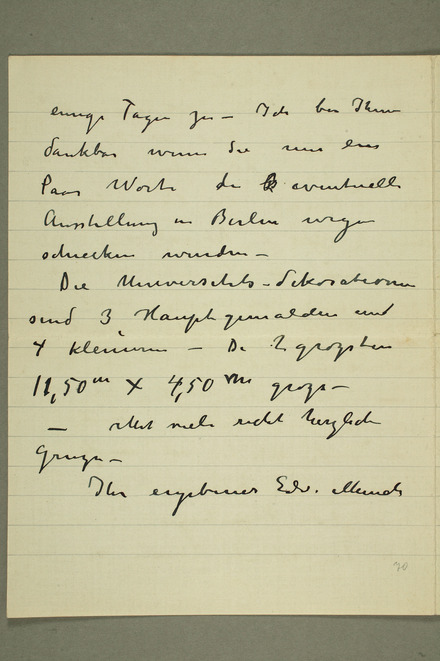 einige Tagen zu – Ich bin Ihnen
dankbar wenn Sie mir ein
Paar Worte die eventuelle
Ausstellung in Berlin wegen
schicken wurden –
Die Universitets-dekorationen
sind 3 Hauptgemälden und
kleineren – Die 2 grogsten
11,50 m X 4,50 m grogs –
– Mit viele recht herzliche
Grugse –
Ihr ergebener Edv. Munch
70